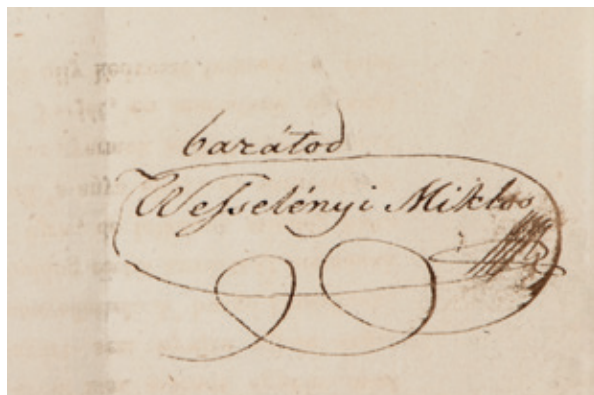 barátod
Wesselényi Miklos